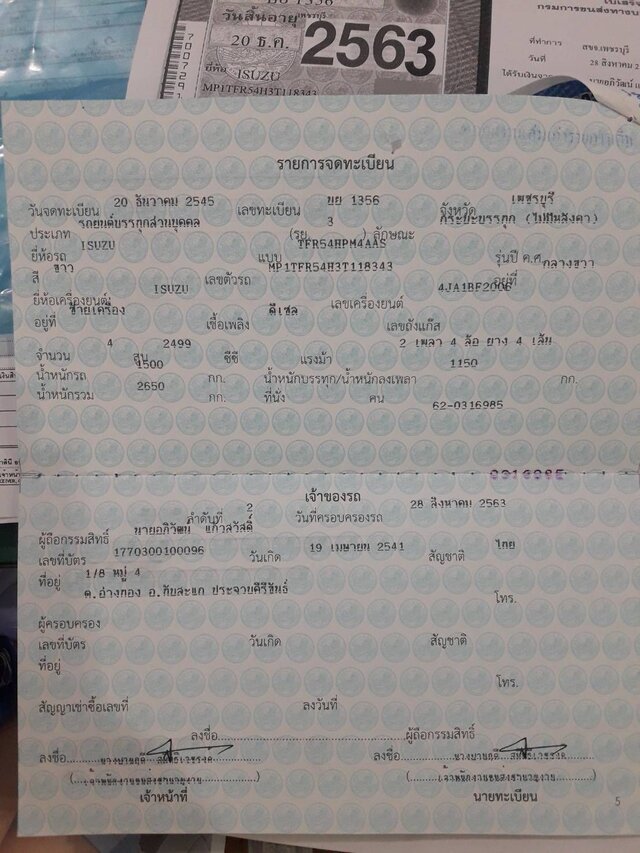 บย 1356
วันสิ้นอายุ เพชรบุรี
20 ธ.ค. 2563
ยี่ห้อ ISUZU
MP1TFR54H3T118343
ใบเสร็จ
กรมการขนส่งทางบ
ที่ทำการ สขจ.เพชรบุรี
วันที่ 28 สิงหาคม 2
ได้รับเงินจาก นายอภิวัฒน์ แ
รายการจดทะเบียน
วันจดทะเบียน 20 ธันวาคม 2545 เลขทะเบียน บย 1356 จังหวัด เพชรบุรี
ประเภท รถยนต์บรรทุกส่วนบุคคล (รย. 3 ) ลักษณะ กระบะบรรทุก (ไม่มีหลังคา)
ยี่ห้อรถ ISUZU แบบ TFR54HPM4AAS รุ่นปี ค.ศ.
สี ขาว เลขตัวรถ MP1TFR54H3T118343 อยู่ที่ กลางขวา
ยี่ห้อเครื่องยนต์ ISUZU เลขเครื่องยนต์ 4JA1BF2006
อยู่ที่ ซ้ายเครื่อง เชื้อเพลิง ดีเซล เลขถังแก๊ส
จำนวน 4 สูบ 2499 ซีซี แรงม้า 2 เพลา 4 ล้อ ยาง 4 เส้น
น้ำหนักรถ 1500 กก. น้ำหนักบรรทุก/น้ำหนักลงเพลา 1150 กก.
น้ำหนักรวม 2650 กก. ที่นั่ง คน
62-0316985
0316985
เจ้าของรถ
ลำดับที่ 2 วันที่ครอบครองรถ 28 สิงหาคม 2563
ผู้ถือกรรมสิทธิ์ นายอภิวัฒน์ แก้วสวัสดิ์
เลขที่บัตร 1770300100096 วันเกิด 19 เมษายน 2541 สัญชาติ ไทย
ที่อยู่ 1/8 หมู่ 4
ต.อ่างทอง อ.ทับสะแก ประจวบคีรีขันธ์
โทร.
ผู้ครอบครอง
เลขที่บัตร วันเกิด สัญชาติ
ที่อยู่
โทร.
สัญญาเช่าซื้อเลขที่ ลงวันที่
ลงชื่อ ผู้ถือกรรมสิทธิ์
ลงชื่อ ลงชื่อ
(เจ้าพนักงานขนส่งชำนาญงาน) (เจ้าพนักงานขนส่งชำนาญงาน)
เจ้าหน้าที่ นายทะเบียน
5